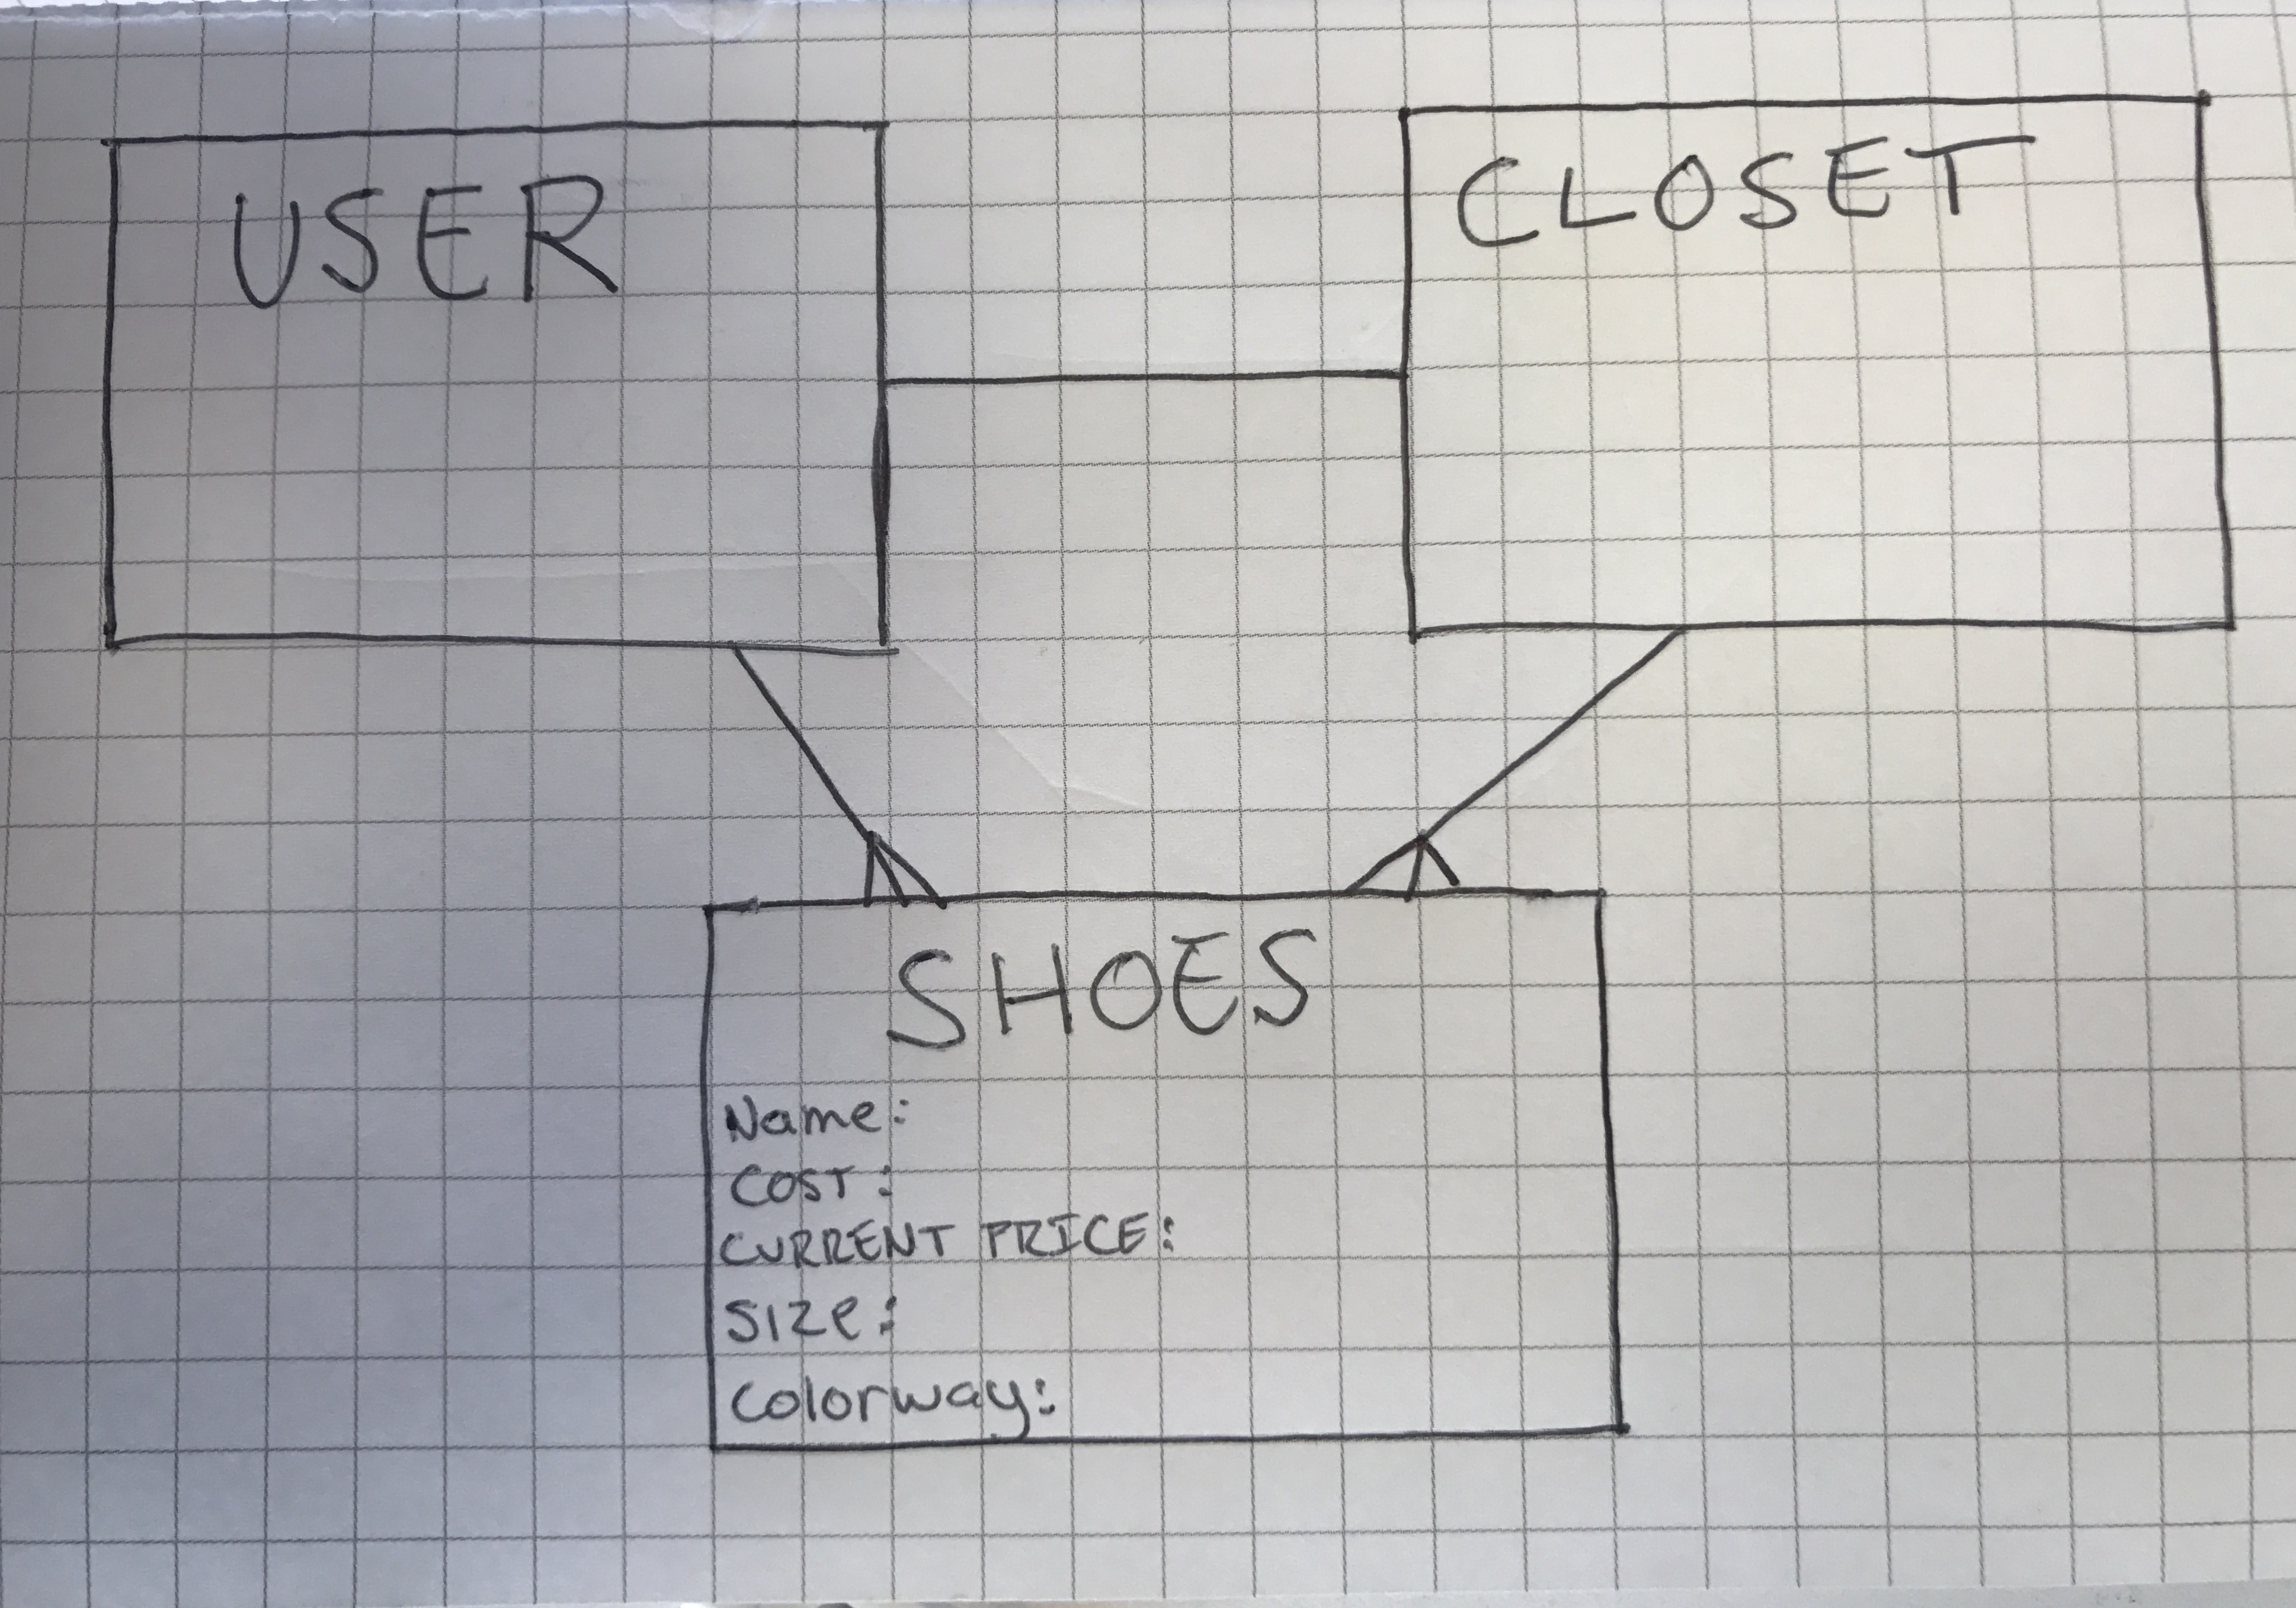 USER
CLOSET
SHOES
Name:
COST:
CURRENT PRICE:
SIZe:
Colorway: